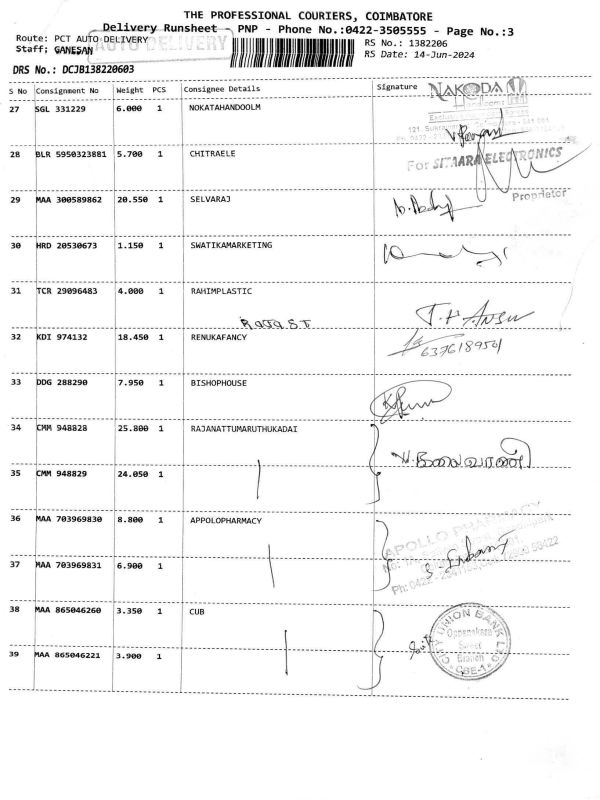 THE PROFESSIONAL COURIERS, COIMBATORE
Delivery Runsheet - PNP - Phone No.:0422-3505555 - Page No.:3
Route: PCT AUTO DELIVERY
AUTO DELIVERY
RS No.: 1382206
Staff: GANESAN
RS Date: 14-Jun-2024
DRS No.: DCJB138220603
S No Consignment No Weight PCS Consignee Details Signature
NAKODA
27 SGL 331229 6.000 1 NOKATAHANDOOLM
28 BLR 5950323881 5.700 1 CHITRAELE
For SITAARA ELECTRONICS
Proprietor
29 MAA 300589862 20.550 1 SELVARAJ
30 HRD 20530673 1.150 1 SWATIKAMARKETING
31 TCR 29096483 4.000 1 RAHIMPLASTIC
32 KDI 974132 18.450 1 RENUKAFANCY
33 DDG 288290 7.950 1 BISHOPHOUSE
34 CMM 948828 25.800 1 RAJANATTUMARUTHUKADAI
35 CMM 948829 24.050 1
36 MAA 703969830 8.800 1 APPOLOPHARMACY
APOLLO PHARMACY
37 MAA 703969831 6.900 1
38 MAA 865046260 3.350 1 CUB
CITY UNION BANK LTD
Oppanakara
Street
Branch
CBE-1
39 MAA 865046221 3.900 1